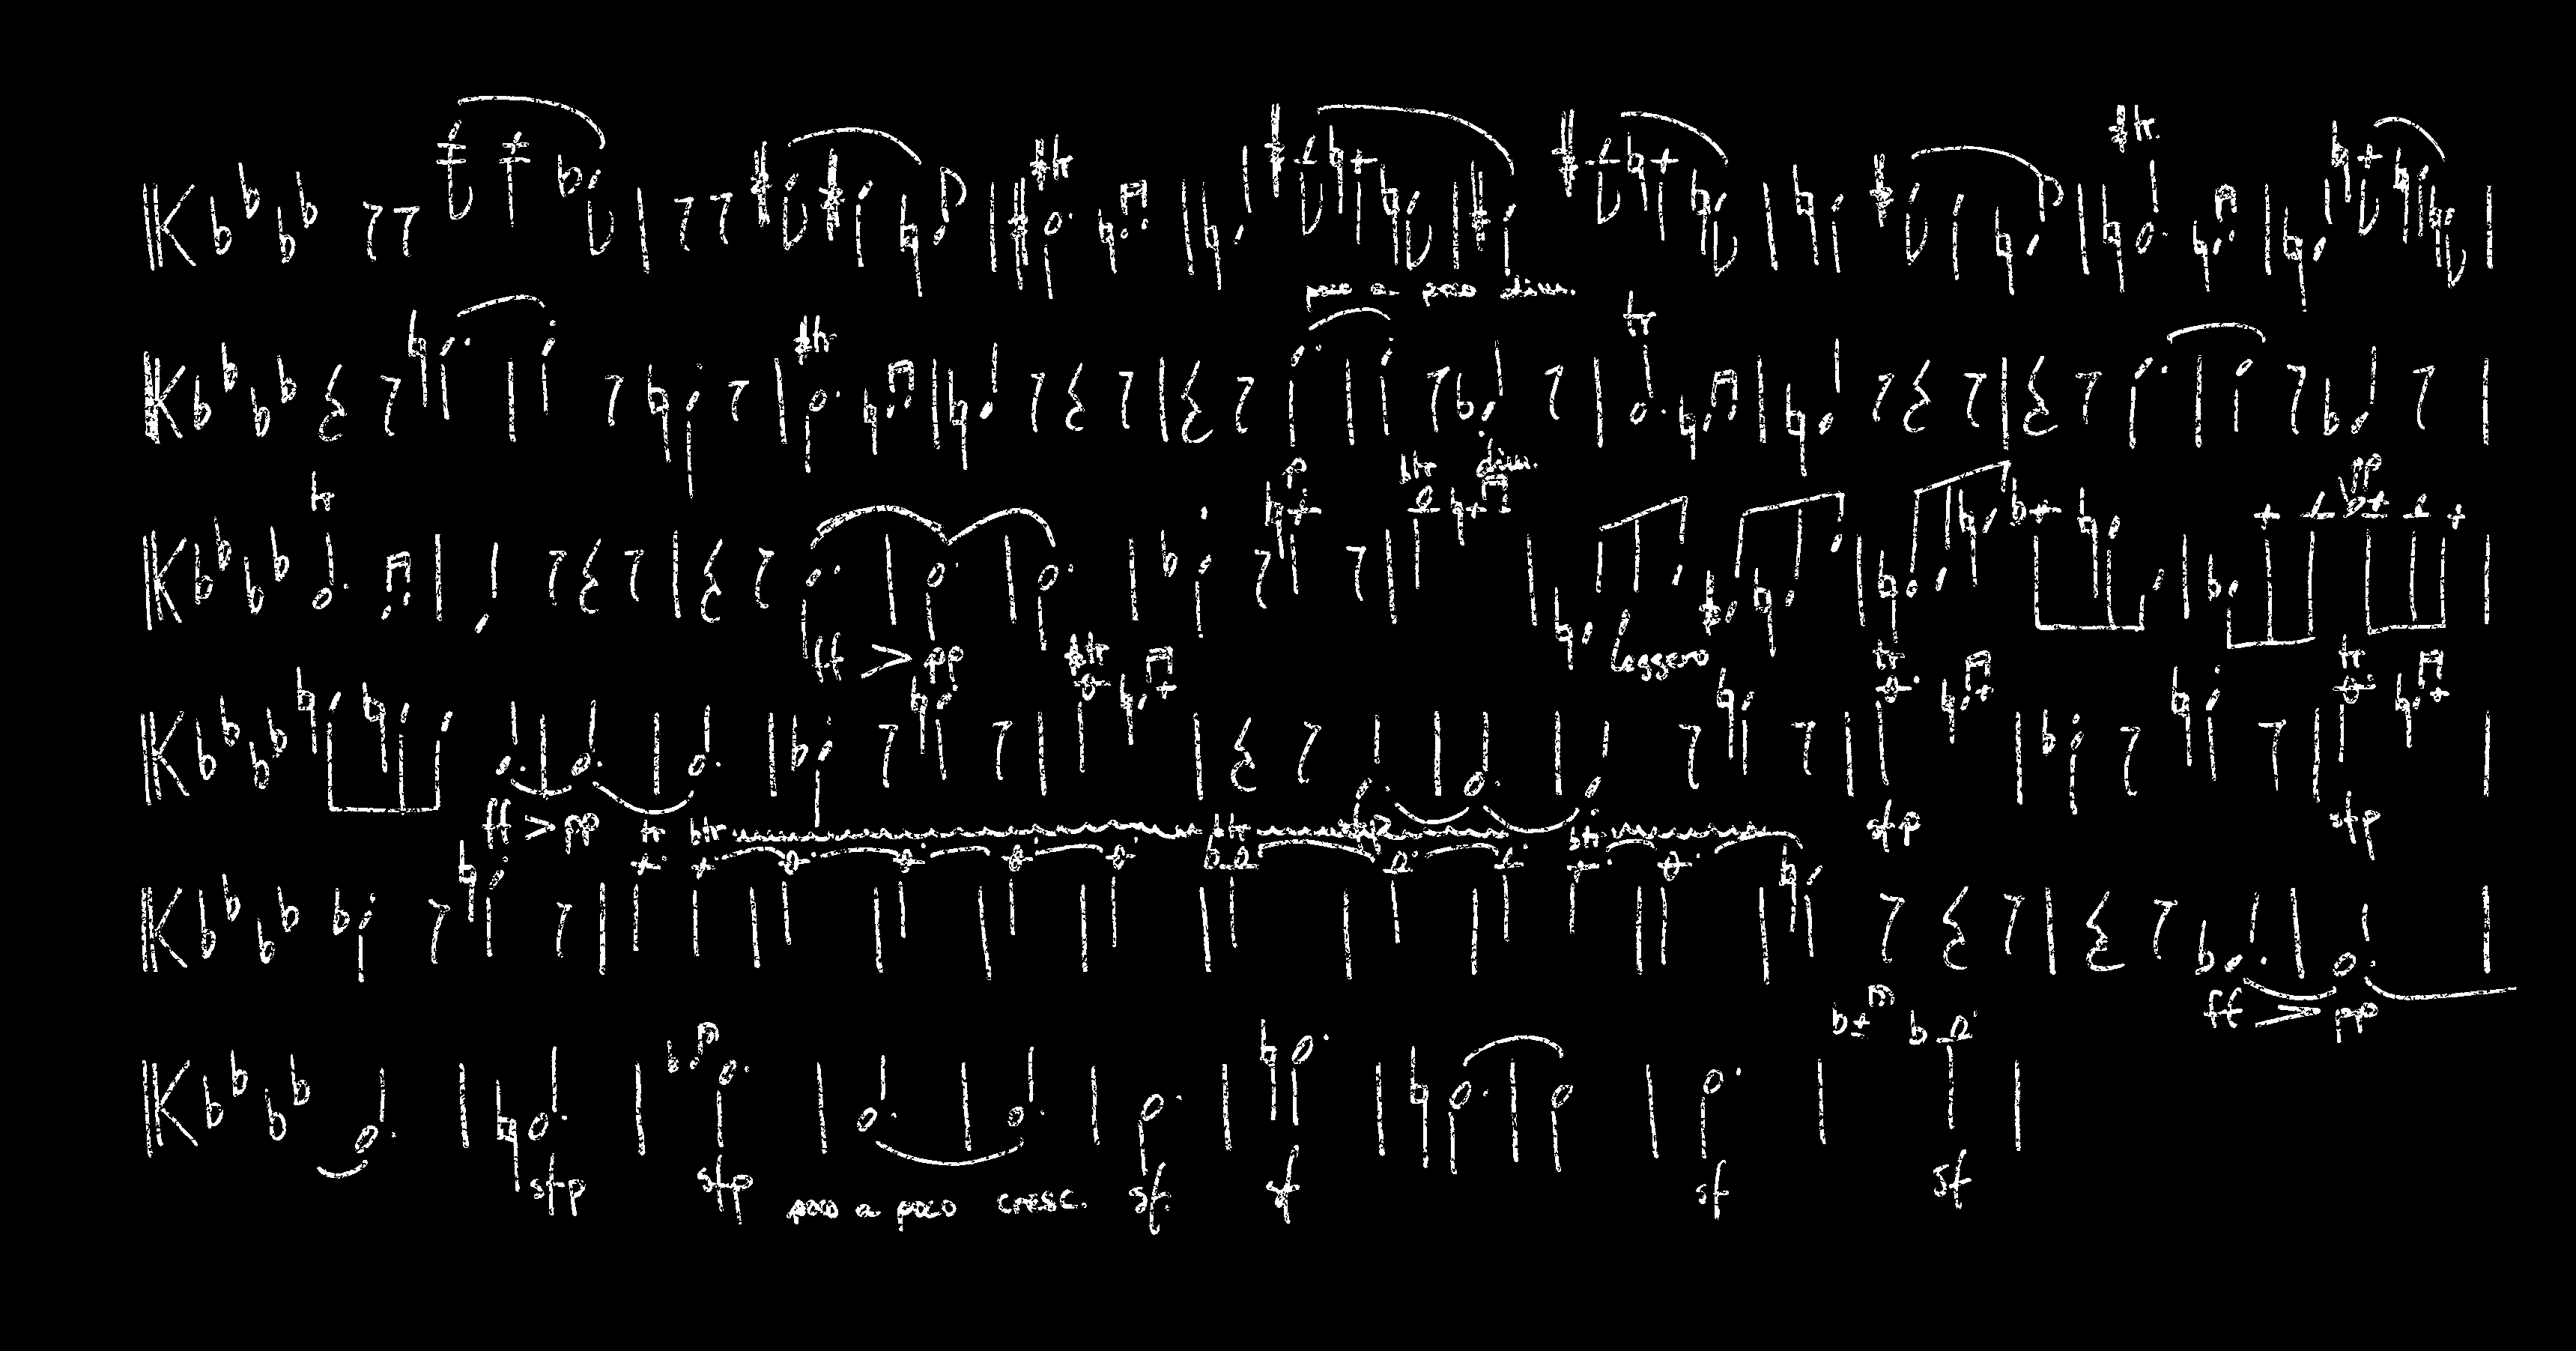 tr tr
poco a poco dim.
tr tr
tr p tr dim. pp
ff > pp leggero
tr tr tr
ff > pp sfp sfp sfp
tr tr tr tr
ff > pp
sfp sfp poco a poco cresc. sf sf sf sf